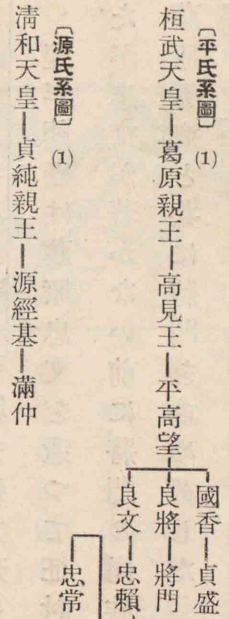 〔平氏系圖〕 (1)
桓武天皇—葛原親王—高見王—平高望
國香—貞盛
良將—將門
良文—忠賴
忠常
〔源氏系圖〕 (1)
淸和天皇—貞純親王—源經基—滿仲